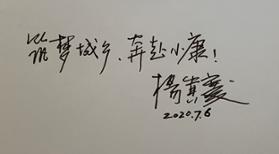 筑梦城乡，奔赴小康！
杨
2020.7.6